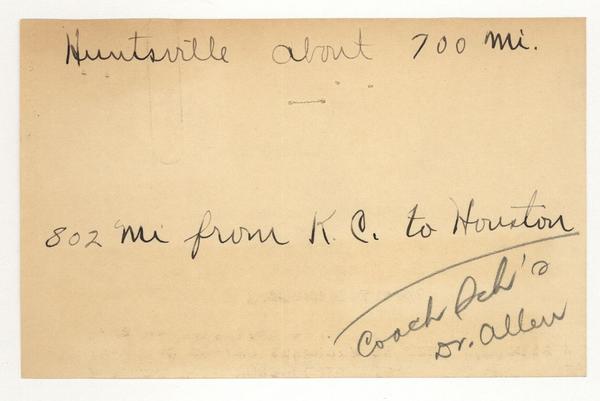 Huntsville about 700 mi.
802 mi from K. C. to Houston
Coach
Dr. Allen